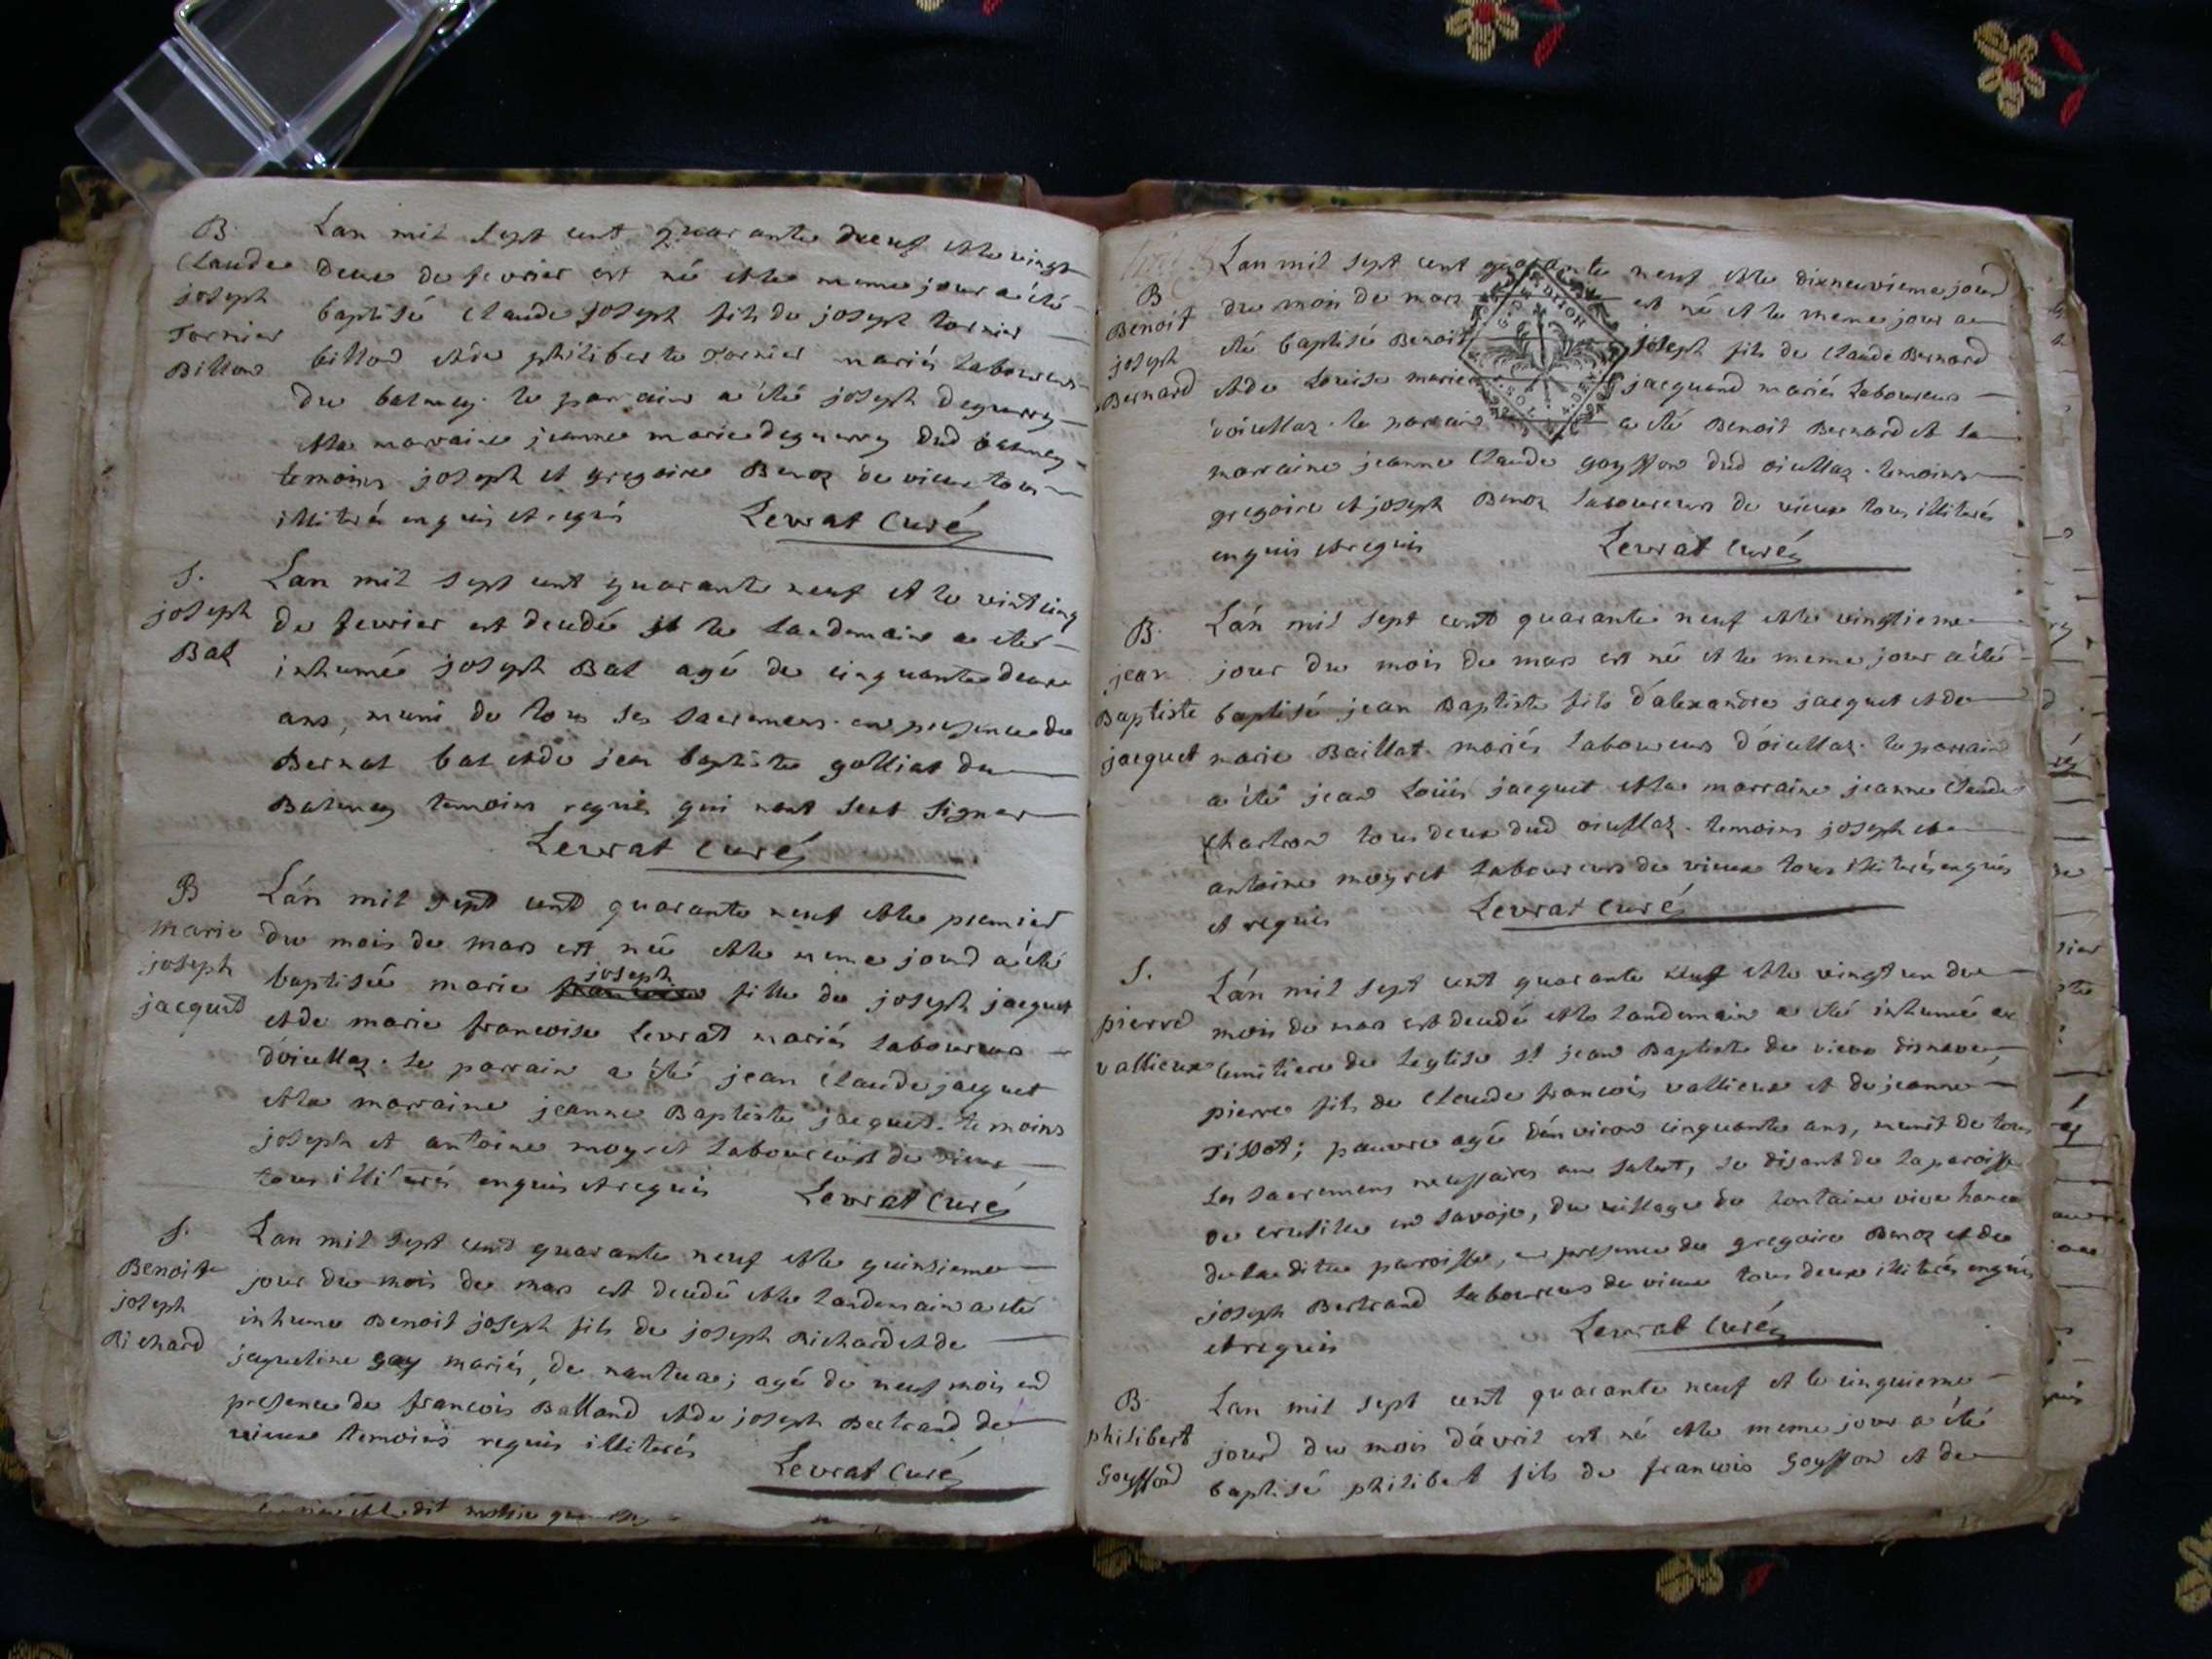 B. Lan mil sept cent quarante neuf et le vingt
Claude deux de fevrier est né et le meme jour a été
joseph baptisé Claude joseph fils de joseph tornier
Tornier billion et de philiberte Tornier mariés laboureurs
Billion
du balmey. le parrain a été joseph deguerry
et la marraine jeanne marie deguerry dud balmey
temoins joseph et gregoire Benoz de vieux tous
illiterés enquis et requis Levrat Curé
S. Lan mil sept cent quarante neuf et le vint cinq
joseph de fevrier est decedé et le landemain a eté
Bal inhumé joseph Bal agé de cinquante deux
ans, muni de tous ses sacremens. en presence de
Bernat bal et de jean baptiste golliat du
Balmey temoins requis qui nont sceu signer
Levrat curé
B Lán mil sept cent quarante neuf et le premier
marie du mois de mars est née et le meme jour a été
joseph baptisée marie joseph fille de joseph jacquet
jacquet et de marie francoise Levrat mariés laboureurs
dóiullaz. le parrain a été jean Claude jacquet
et la marraine jeanne Baptiste jacquet. temoins
joseph et antoine moyret laboureurs de vieux
tous illiterés enquis et requis Levrat Curé
S. Lan mil sept cent quarante neuf et le quinsieme
Benoite jour du mois de mars est decedé et le landemain a eté
joseph inhume Benoit joseph fils de joseph Richard et de
Richard jaqueline gay mariés, de nantua; agé de neuf mois en
presence de francois Balland et de joseph Bertrand de
vieux temoins requis illiterés
Levrat Curé
Lan mil sept cent quarante neuf et le dixneuvieme jour
B du mois de mars est né et le meme jour a
Benoit été baptisé Benoit joseph fils de Claude Bernard
joseph et de Louise marie jacquand mariés Laboureurs
Bernard dóiullaz. le parrain a eté Benoit Bernard et la
marraine jeanne Claude goyffon dud oiullaz. temoins
gregoire et joseph Benoz laboureurs de vieux tous illiterés
enquis et requis Levrat Curé
B. Lán mil sept cent quarante neuf et le vingtieme
jean jour du mois de mars est né et le meme jour a été
Baptiste baptisé jean Baptiste fils dálexandre jacquet et de
jacquet marie Baillat mariés laboureurs dóiullaz. le parrain
a été jean Loüis jacquet et la marraine jeanne Claude
Charlion tous deux dud oiullaz. temoins joseph et
antoine moyret laboureurs de vieux tous illiterés enquis
et requis Levrat Curé
S. Lán mil sept cent quarante neuf et le vingt un du
pierre mois de mars est decedé et le landemain a eté inhumé au
vallieux cemitiere de leglise st jean Baptiste de vieux disnave,
pierre fils de Claude francois vallieux et de jeanne
Tissot; pauvre agé dénviron cinquante ans, munit de tous
les sacremens necessaires au salut, se disant de la paroisse
de crusille en savoje, du village de fontaine vive
de la ditte paroisse, en presence de gregoire Benoz et de
joseph Bertrand laboureurs de vieux tous deux illiterés enquis
et requis Levrat Curé
B. Lan mil sept cent quarante neuf et le cinquieme
philibert jour du mois dávril est né et le meme jour a été
Goyffon baptisé philibert fils de francois Goyffon et de